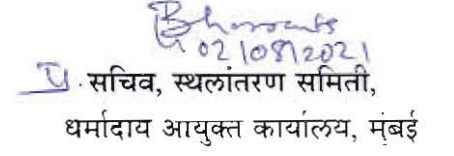 02/08/2021
सचिव, स्थलांतरण समिती,
धर्मादाय आयुक्त कार्यालय, मुंबई